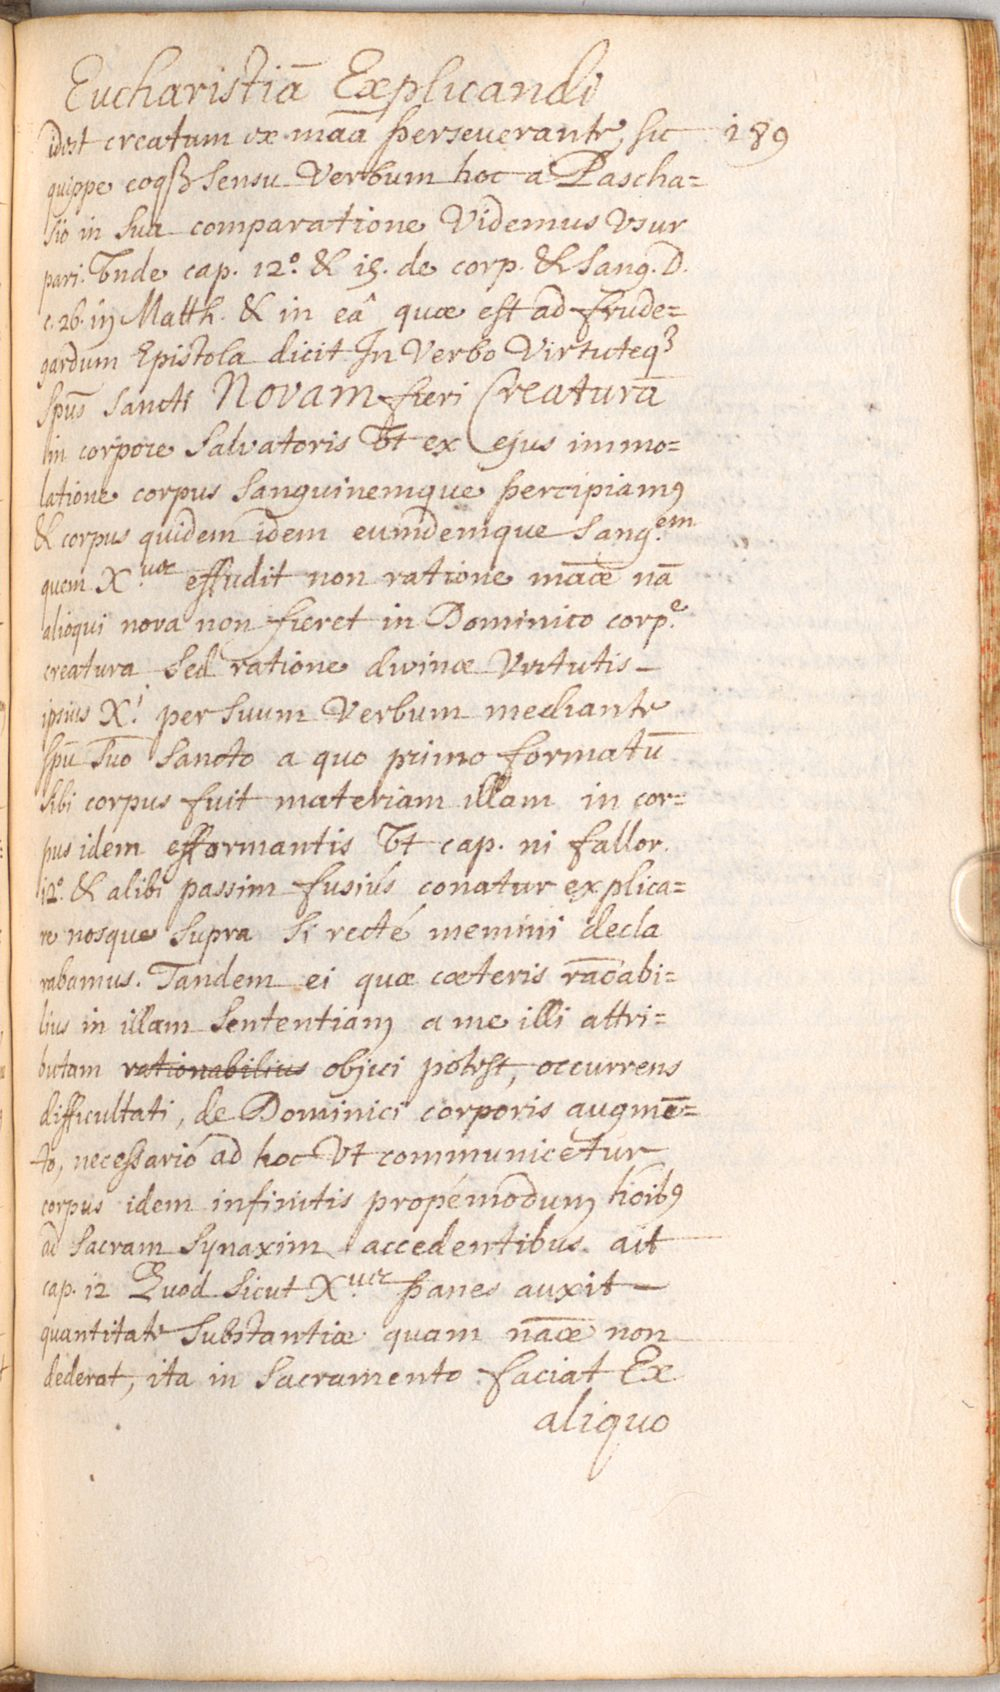 Eucharistiā Explicandi
idest creatum ex māā perseverante, sic 189
quippe eoqß sensu Verbum hoc a Pascha=
sio in sua comparatione Videmus Vsur
pari. Vnde cap. 12.° & 15. de corp. & Sang. D.
c. 26. in Matth. & in eâ quæ est ad frude=
gardum Epistola dicit In Verbo Virtuteq³
Spūs Sancti NOVAM fieri Creaturā
in corpore Salvatoris Vt ex ejus immo=
latione corpus Sanguinemque percipiamꝰ
& corpus quidem idem eumdemque Sang.em
quem X.us effudit non ratione māæ nā
alioqui nova non fieret in Dominico corp.e
creatura sed ratione divinæ Virtutis
ipsius X.i per Suum Verbum mediante
Spū Suo Sancto a quo primo formatū
sibi corpus fuit materiam illam in cor=
pus idem efformantis Vt cap. ni fallor.
12.° & alibi passim fusiús conatur explica=
re nosque Supra Si recté memini decla
rabamus. Tandem ei quæ cæteris rāoabi=
lius in illam Sententiam a me illi attri=
butam rationabilius objici potest, occurrens
difficultati, de Dominici corporis augmē=
to, necessarió ad hoc Vt communicetur
corpus idem infinitis propémodum hōibꝰ
ad Sacram Synaxim accedentibus. ait
cap. 12 Quod Sicut X.us panes auxit
quantitate Substantiæ quam nāæ non
dederat, ita in Sacramento faciat Ex
aliquo